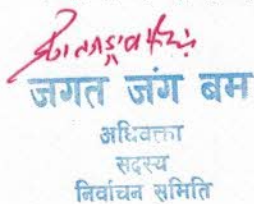 जगत जंग बम
अधिवक्ता
सदस्य
निर्वाचन समिति